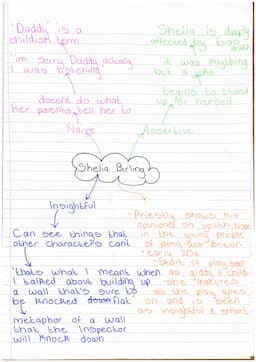 'Daddy' is a
childish term
'im sorry Daddy actually
I was listening'
doesnt do what
her parents tell her to
Naive
Shelia is deeply
affected by Evas
death
'it was anything
but a joke'
begins to stand
up for herself
Assertive
Shelia Birling
Insightful
Can see things that
other characters cant
'thats what I meant when
I talked about building up
a wall that's sure to
be knocked down flat'
metaphor of a wall
that the Inspector
will knock down
-Priestly shows his
opinions on youth, hope
in the young people
of post-war Britain
-early 20s
-Start of play
as giddy & child
she matures
as the play goes
on and is seen
as insightful & smart